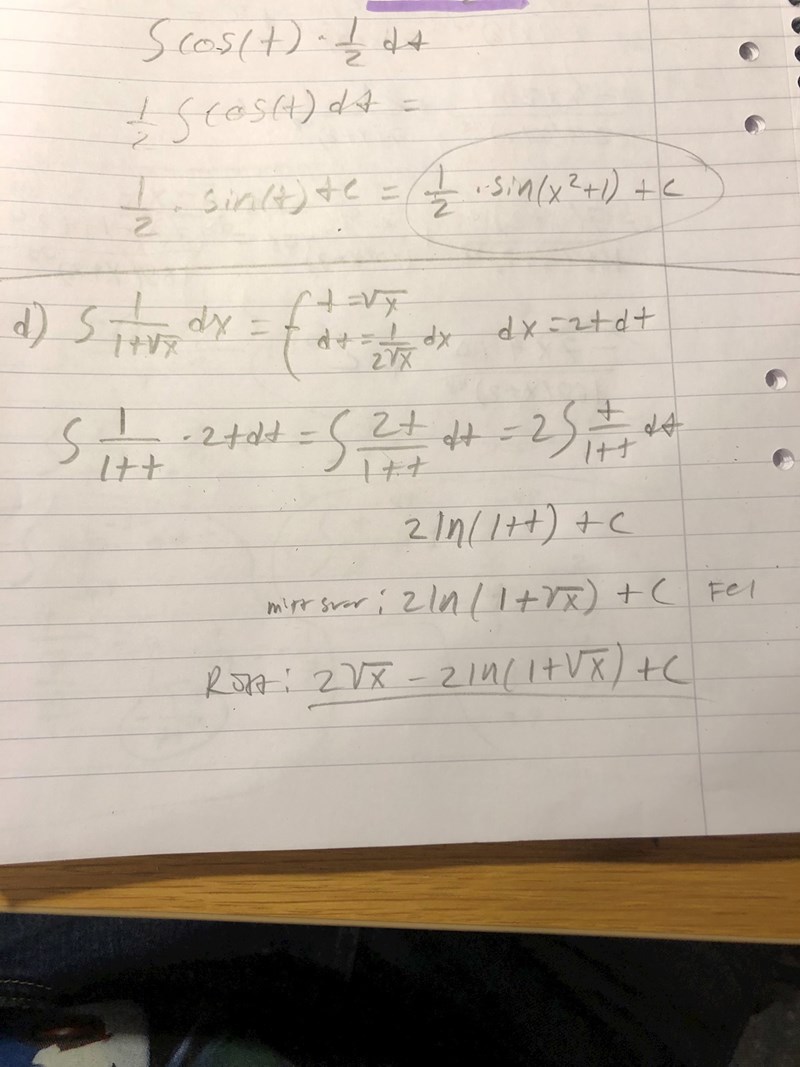 ∫ cos(t) · 1/2 dt
1/2 ∫ cos(t) dt =
1/2 · sin(t) + c = 1/2 · sin(x²+1) + c
d) ∫ 1/(1+√x) dx = { t = √x
dt = 1/(2√x) dx   dx = 2t dt
∫ 1/(1+t) · 2t dt = ∫ 2t/(1+t) dt = 2 ∫ t/(1+t) dt
2 ln(1+t) + c
mitt svar: 2 ln(1+√x) + c   Fel
Rätt: 2√x − 2 ln(1+√x) + c